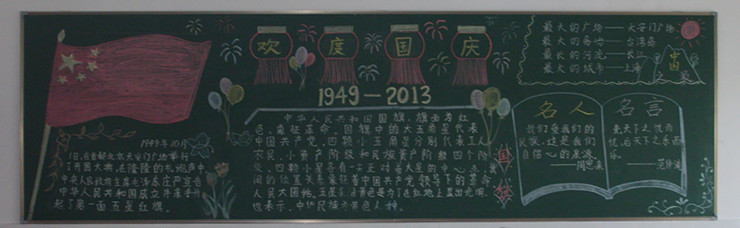 欢度国庆
1949—2013
1949年10月
1日,在首都北京天安门广场举行
开国大典,在隆隆的礼炮声中
中央人民政府主席毛泽东庄严宣告
中华人民共和国成立并亲手升
起了第一面五星红旗。
中华人民共和国国旗,旗面为红
色,象征革命。国旗中的大五角星代表
中国共产党,四颗小五角星分别代表工人
农民,小资产阶级和民族资产阶级四个阶
级,四颗小星各有一尖正对着大星的中心,
间的位置关系象征着中国共产党领导下的革命
人民大团结,五星呈黄色是为了在红地上显出光明
也表示,中华民族为黄色人种。
国旗
最大的广场——天安门广场
最大的岛屿——台湾岛
最长的河流——长江
最大的城市——上海
中国之最
名人名言
我们爱我们的
民族,这是我们
自信心的源泉。
——周恩来
先天下之忧而
忧,后天下之乐而
乐。
——范仲淹